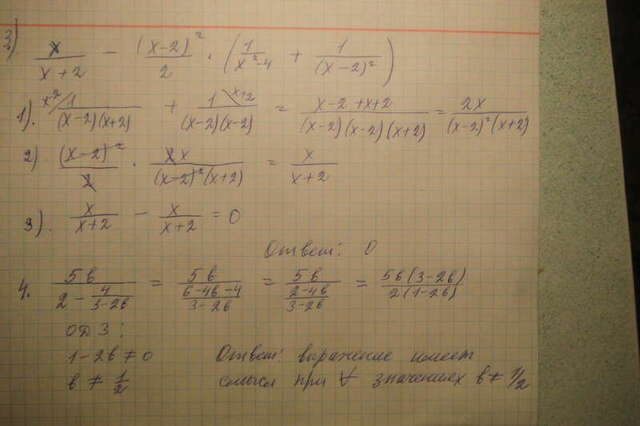 3) x/(x+2) − (x−2)²/2 · (1/(x²−4) + 1/(x−2)²)
1). x−2/ 1/((x−2)(x+2)) + 1\x+2 /((x−2)(x−2)) = (x−2+x+2)/((x−2)(x−2)(x+2)) = 2x/((x−2)²(x+2))
2) (x−2)²/2 · 2x/((x−2)²(x+2)) = x/(x+2)
3). x/(x+2) − x/(x+2) = 0
Ответ: 0
4. 5b/(2 − 4/(3−2b)) = 5b/((6−4b−4)/(3−2b)) = 5b/((2−4b)/(3−2b)) = 5b(3−2b)/(2(1−2b))
ОДЗ:
1−2b ≠ 0 Ответ: выражение имеет
b ≠ 1/2 смысл при ∀ значениях b ≠ 1/2